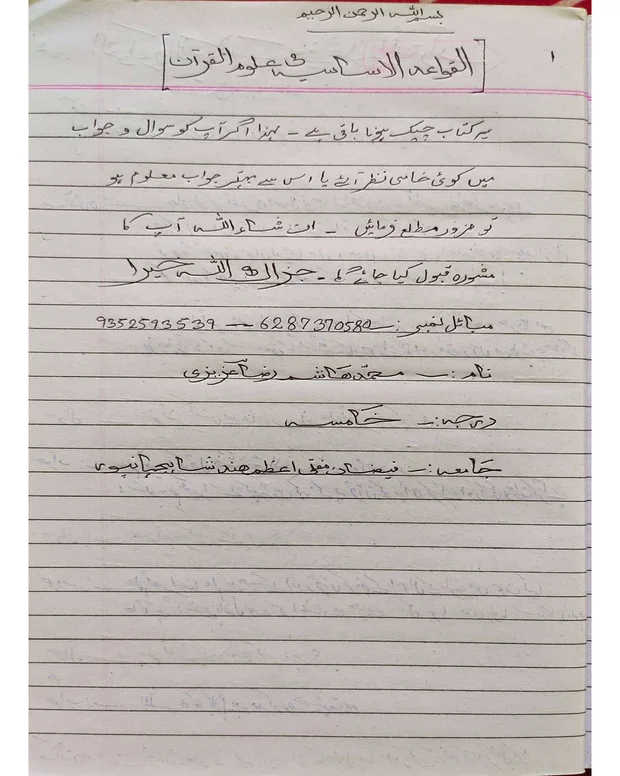 بسم اللہ الرحمن الرحیم
۱
[القواعد الاساسیہ فی علوم القرآن]
یہ کتاب چیک ہونا باقی ہے ۔ لہذا اگر آپ کو سوال و جواب
میں کوئی خامی نظر آئے یا اس سے بہتر جواب معلوم ہو
تو ضرور مطلع فرمائیں ۔ ان شاء اللہ آپ کا
مشورہ قبول کیا جائے گا ۔ جزاک اللہ خیرا
موبائل نمبر :۔ 6287370580 — 9352593539
نام :۔ محمد ہاشم رضا عزیزی
درجہ :۔ خامسہ
جامعہ :۔ فیضان مفتی اعظم ہند شاہجہانپور